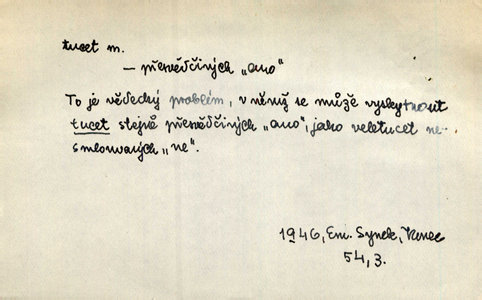 tucet m.
– přesvědčivých „ano“
To je vědecký problém, v němž se může vyskytnout
tucet stejně přesvědčivých „ano“, jako veletucet ne-
smlouvavých „ne“.
1946, Em. Synek, Konec
54, 3.